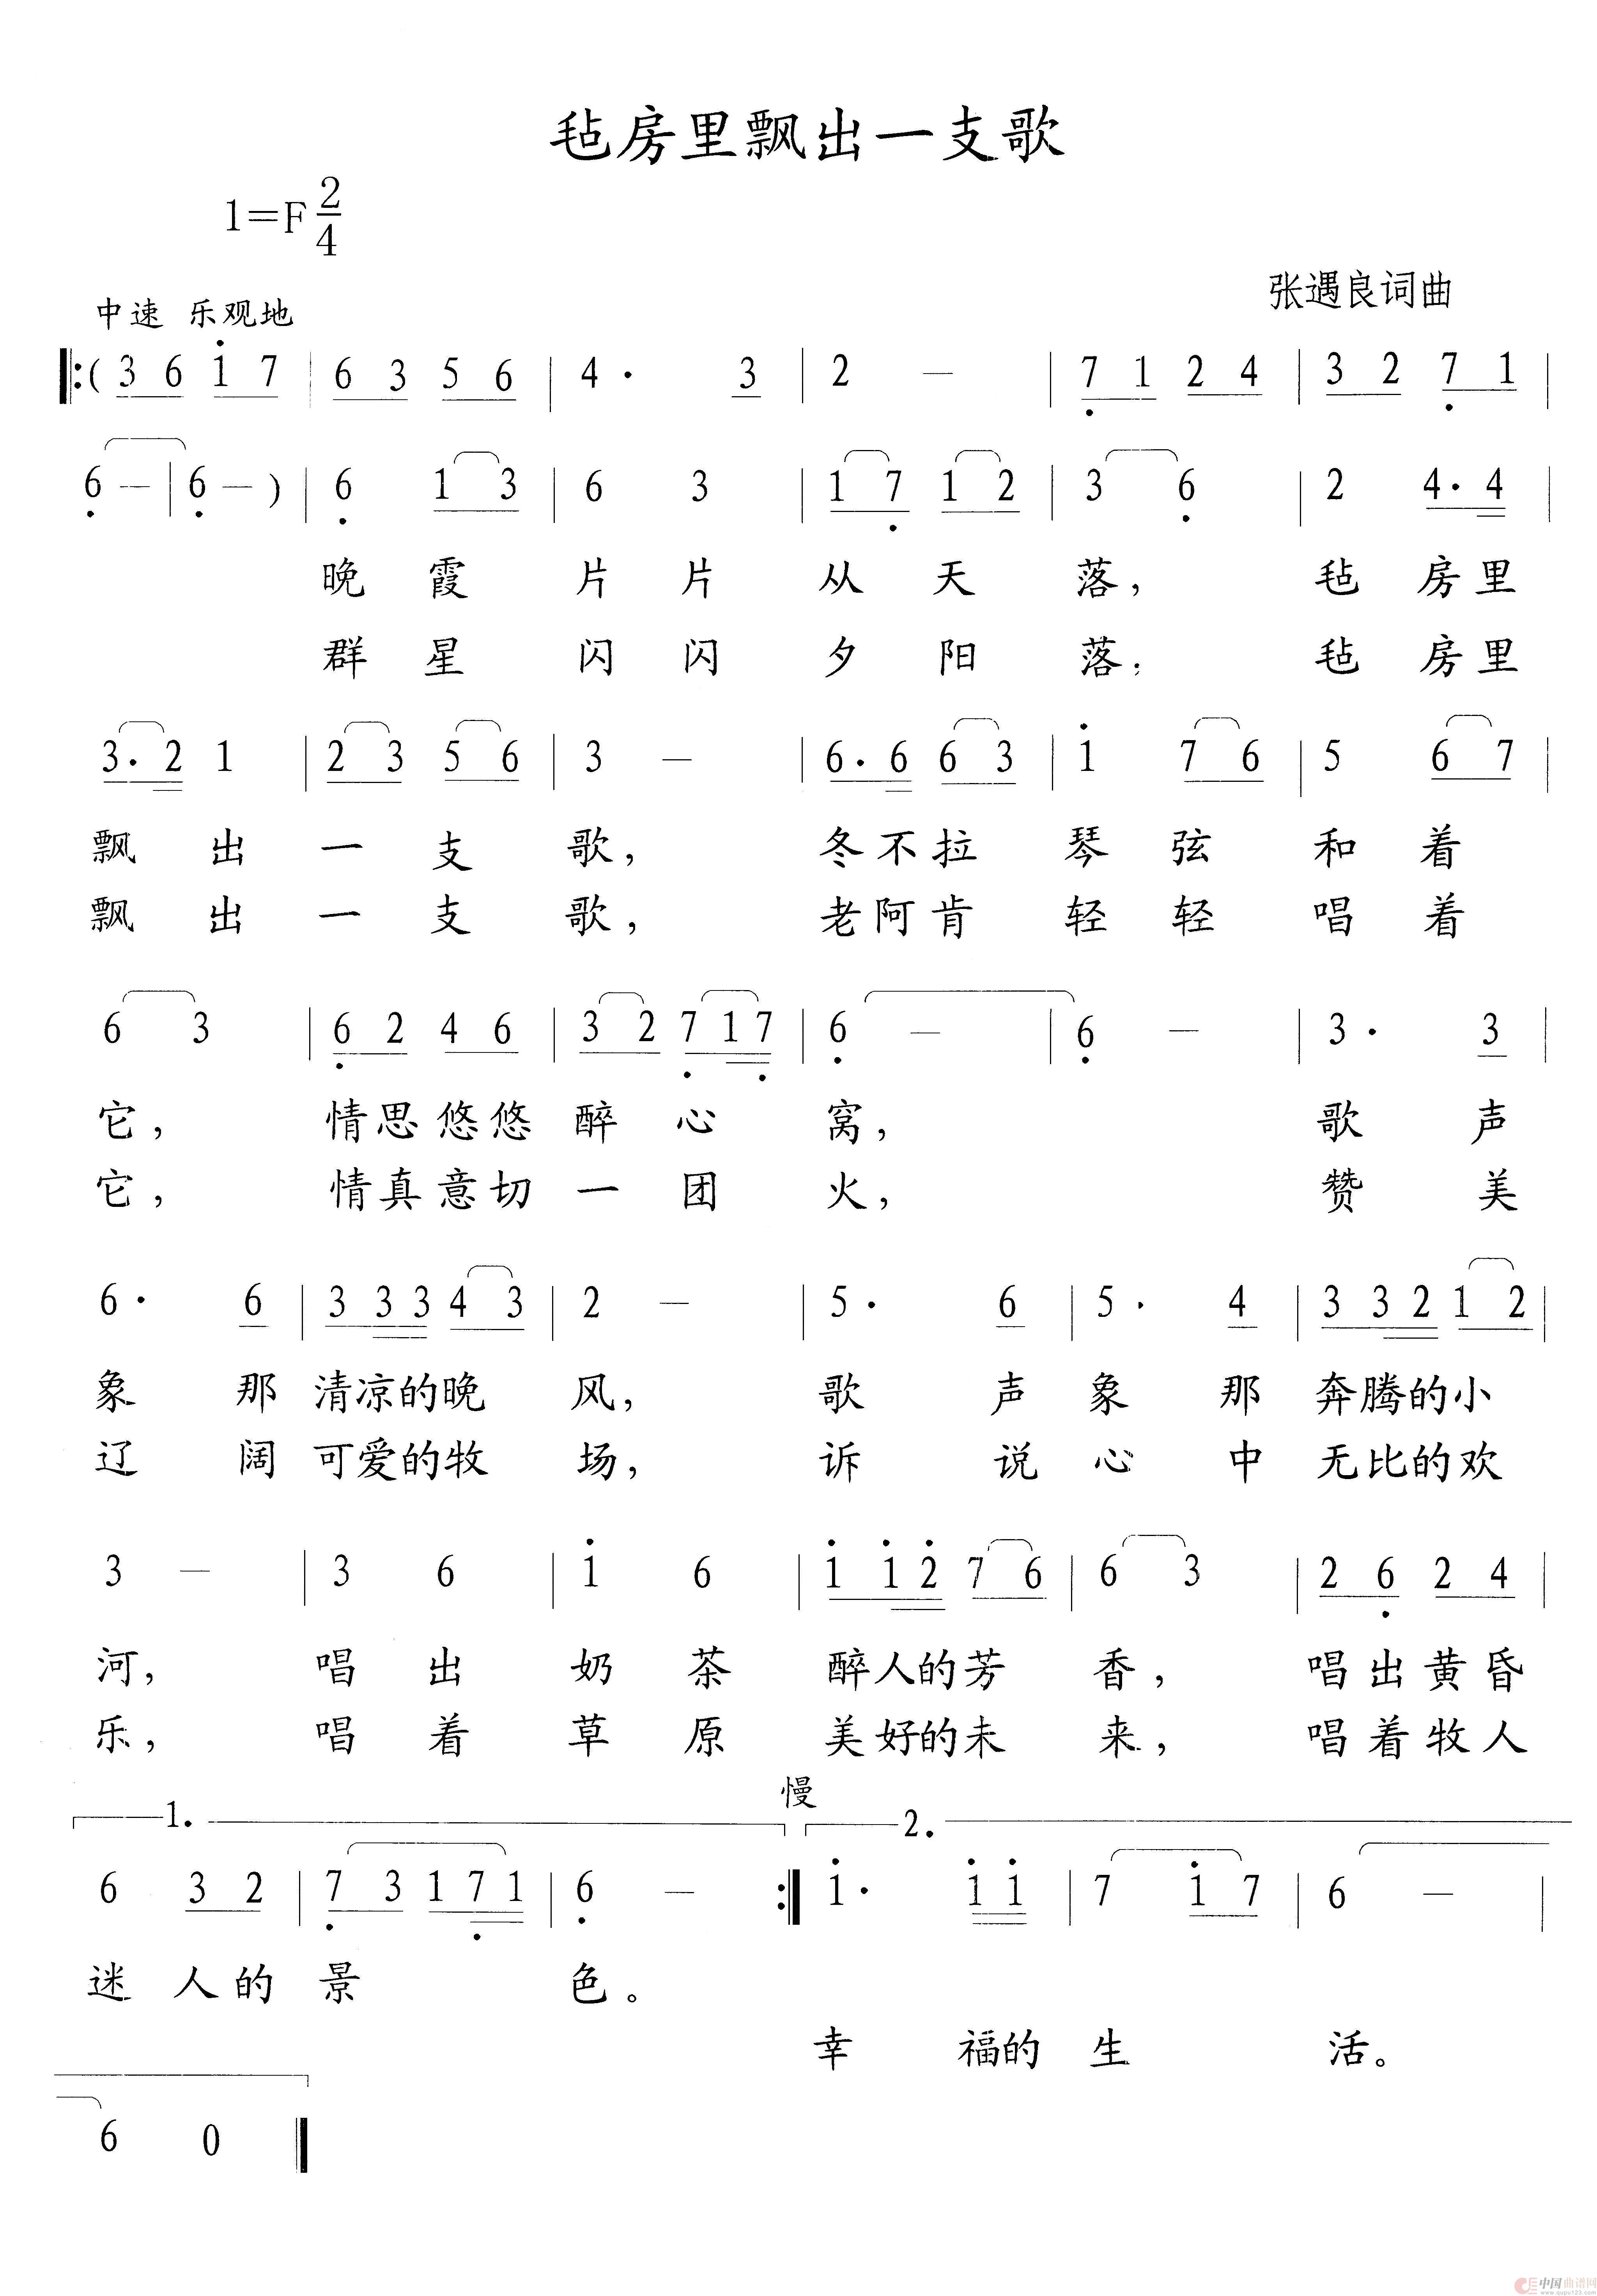 毡房里飘出一支歌
1=F 2/4
张遇良词曲
中速 乐观地
‖:( 3 6 i 7 | 6 3 5 6 | 4 · 3 | 2 — | 7 1 2 4 | 3 2 7 1 |
6 — | 6 — ) | 6 1 3 | 6 3 | 1 7 1 2 | 3 6 | 2 4 · 4 |
晚霞片片从天落, 毡房里
群星闪闪夕阳落; 毡房里
3 · 2 1 | 2 3 5 6 | 3 — | 6 · 6 6 3 | i 7 6 | 5 6 7 |
飘出一支歌, 冬不拉琴弦和着
飘出一支歌, 老阿肯轻轻唱着
6 3 | 6 2 4 6 | 3 2 7 1 7 | 6 — | 6 — | 3 · 3 |
它, 情思悠悠醉心窝, 歌声
它, 情真意切一团火, 赞美
6 · 6 | 3 3 3 4 3 | 2 — | 5 · 6 | 5 · 4 | 3 3 2 1 2 |
象那清凉的晚风, 歌声象那奔腾的小
辽阔可爱的牧场, 诉说心中无比的欢
3 — | 3 6 | i 6 | i i 2 7 6 | 6 3 | 2 6 2 4 |
河, 唱出奶茶醉人的芳香, 唱出黄昏
乐, 唱着草原美好的未来, 唱着牧人
慢
1. 2.
6 3 2 | 7 3 1 7 1 | 6 — :‖ i · i i | 7 i 7 | 6 — |
迷人的景色。
幸福的生活。
6 0 ‖
中国曲谱网
www.qupu123.com